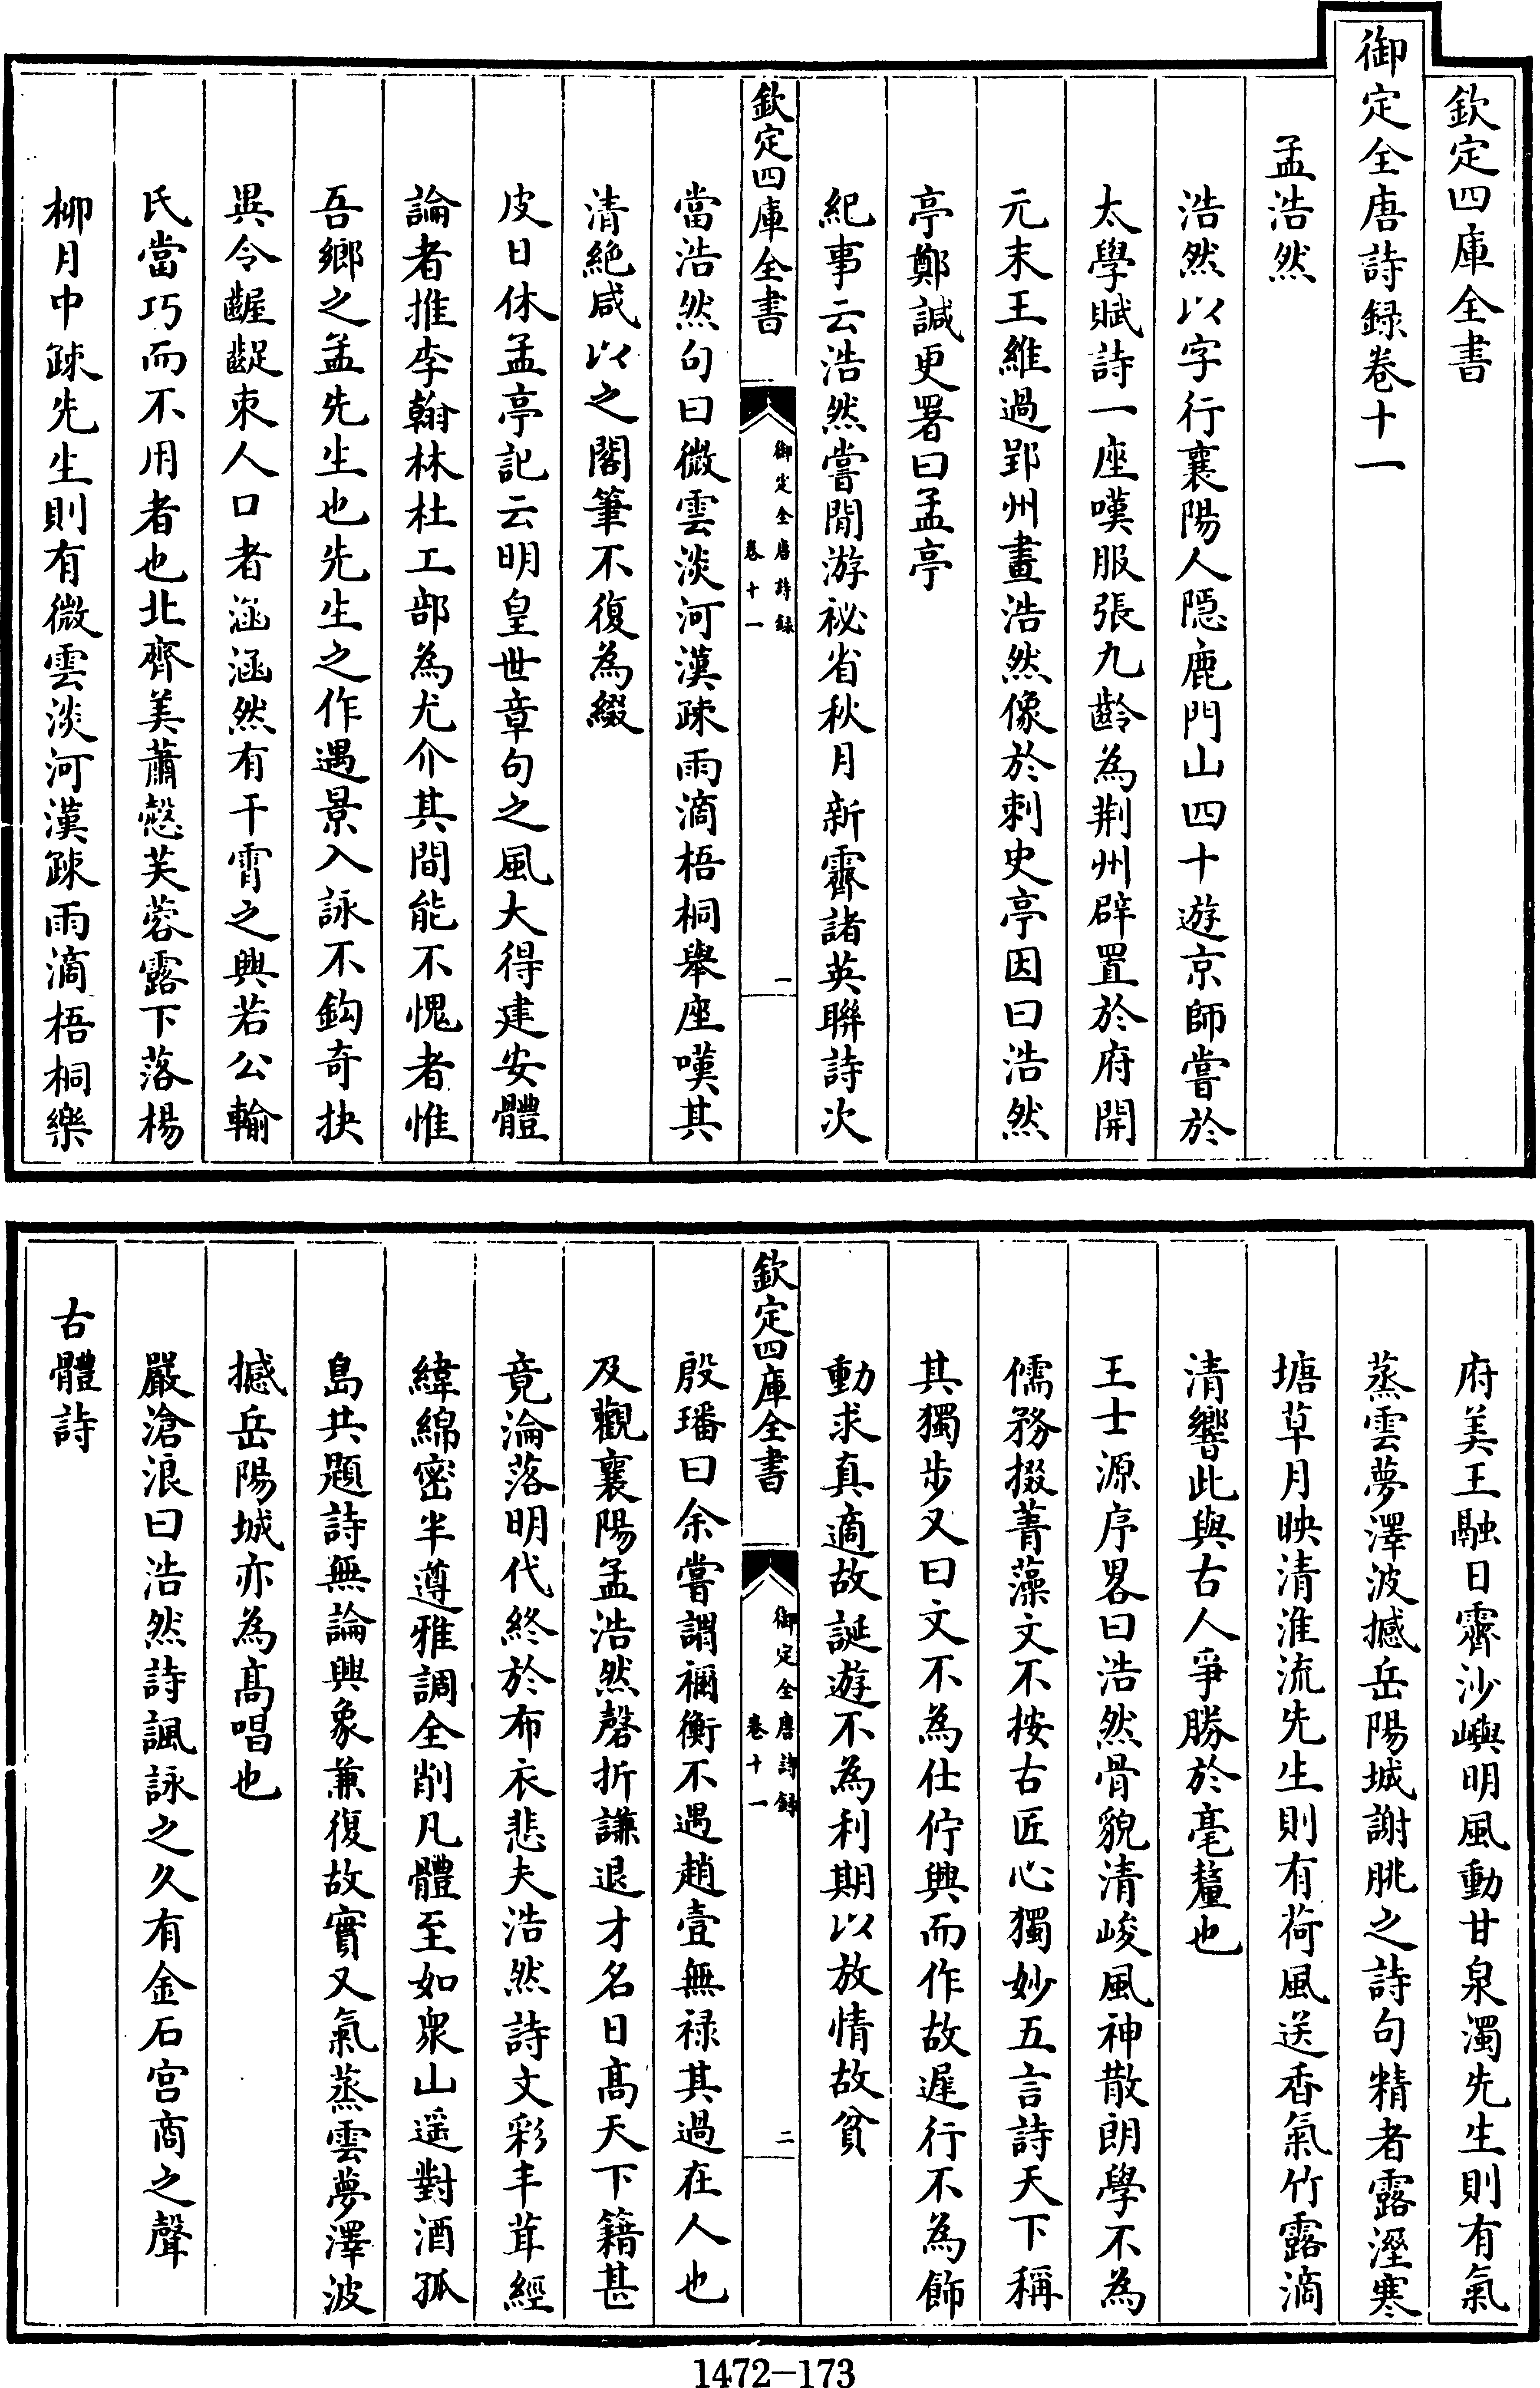 欽定四庫全書
御定全唐詩録卷十一
孟浩然
浩然以字行襄陽人隠鹿門山四十遊京師嘗於
太學賦詩一座嘆服張九齡為荆州辟置於府開
元末王維過郢州畫浩然像於刺史亭因曰浩然
亭鄭諴更署曰孟亭
紀事云浩然嘗閒游祕省秋月新霽諸英聯詩次
欽定四庫全書
御定全唐詩録
卷十一
一
當浩然句曰微雲淡河漢疎雨滴梧桐舉座嘆其
清絶咸以之閣筆不復為綴
皮日休孟亭記云明皇世章句之風大得建安體
論者推李翰林杜工部為尤介其間能不愧者惟
吾鄉之孟先生也先生之作遇景入詠不鈎奇抉
異令齷齪束人口者涵涵然有干霄之興若公輸
氏當巧而不用者也北齊美蕭慤芙蓉露下落楊
柳月中疎先生則有微雲淡河漢疎雨滴梧桐樂
府美王融日霽沙嶼明風動甘泉濁先生則有氣
蒸雲夢澤波撼岳陽城謝朓之詩句精者露溼寒
塘草月映清淮流先生則有荷風送香氣竹露滴
清響此與古人爭勝於毫釐也
王士源序畧曰浩然骨貌清峻風神散朗學不為
儒務掇菁藻文不按古匠心獨妙五言詩天下稱
其獨步又曰文不為仕佇興而作故遲行不為飾
動求真適故誕遊不為利期以放情故貧
欽定四庫全書
御定全唐詩録
卷十一
二
殷璠曰余嘗謂禰衡不遇趙壹無禄其過在人也
及觀襄陽孟浩然磬折謙退才名日髙天下籍甚
竟淪落明代終於布衣悲夫浩然詩文彩丰茸經
緯綿密半遵雅調全削凡體至如衆山遥對酒孤
島共題詩無論興象兼復故實又氣蒸雲夢澤波
撼岳陽城亦為髙唱也
嚴滄浪曰浩然詩諷詠之久有金石宫商之聲
古體詩
1472-173